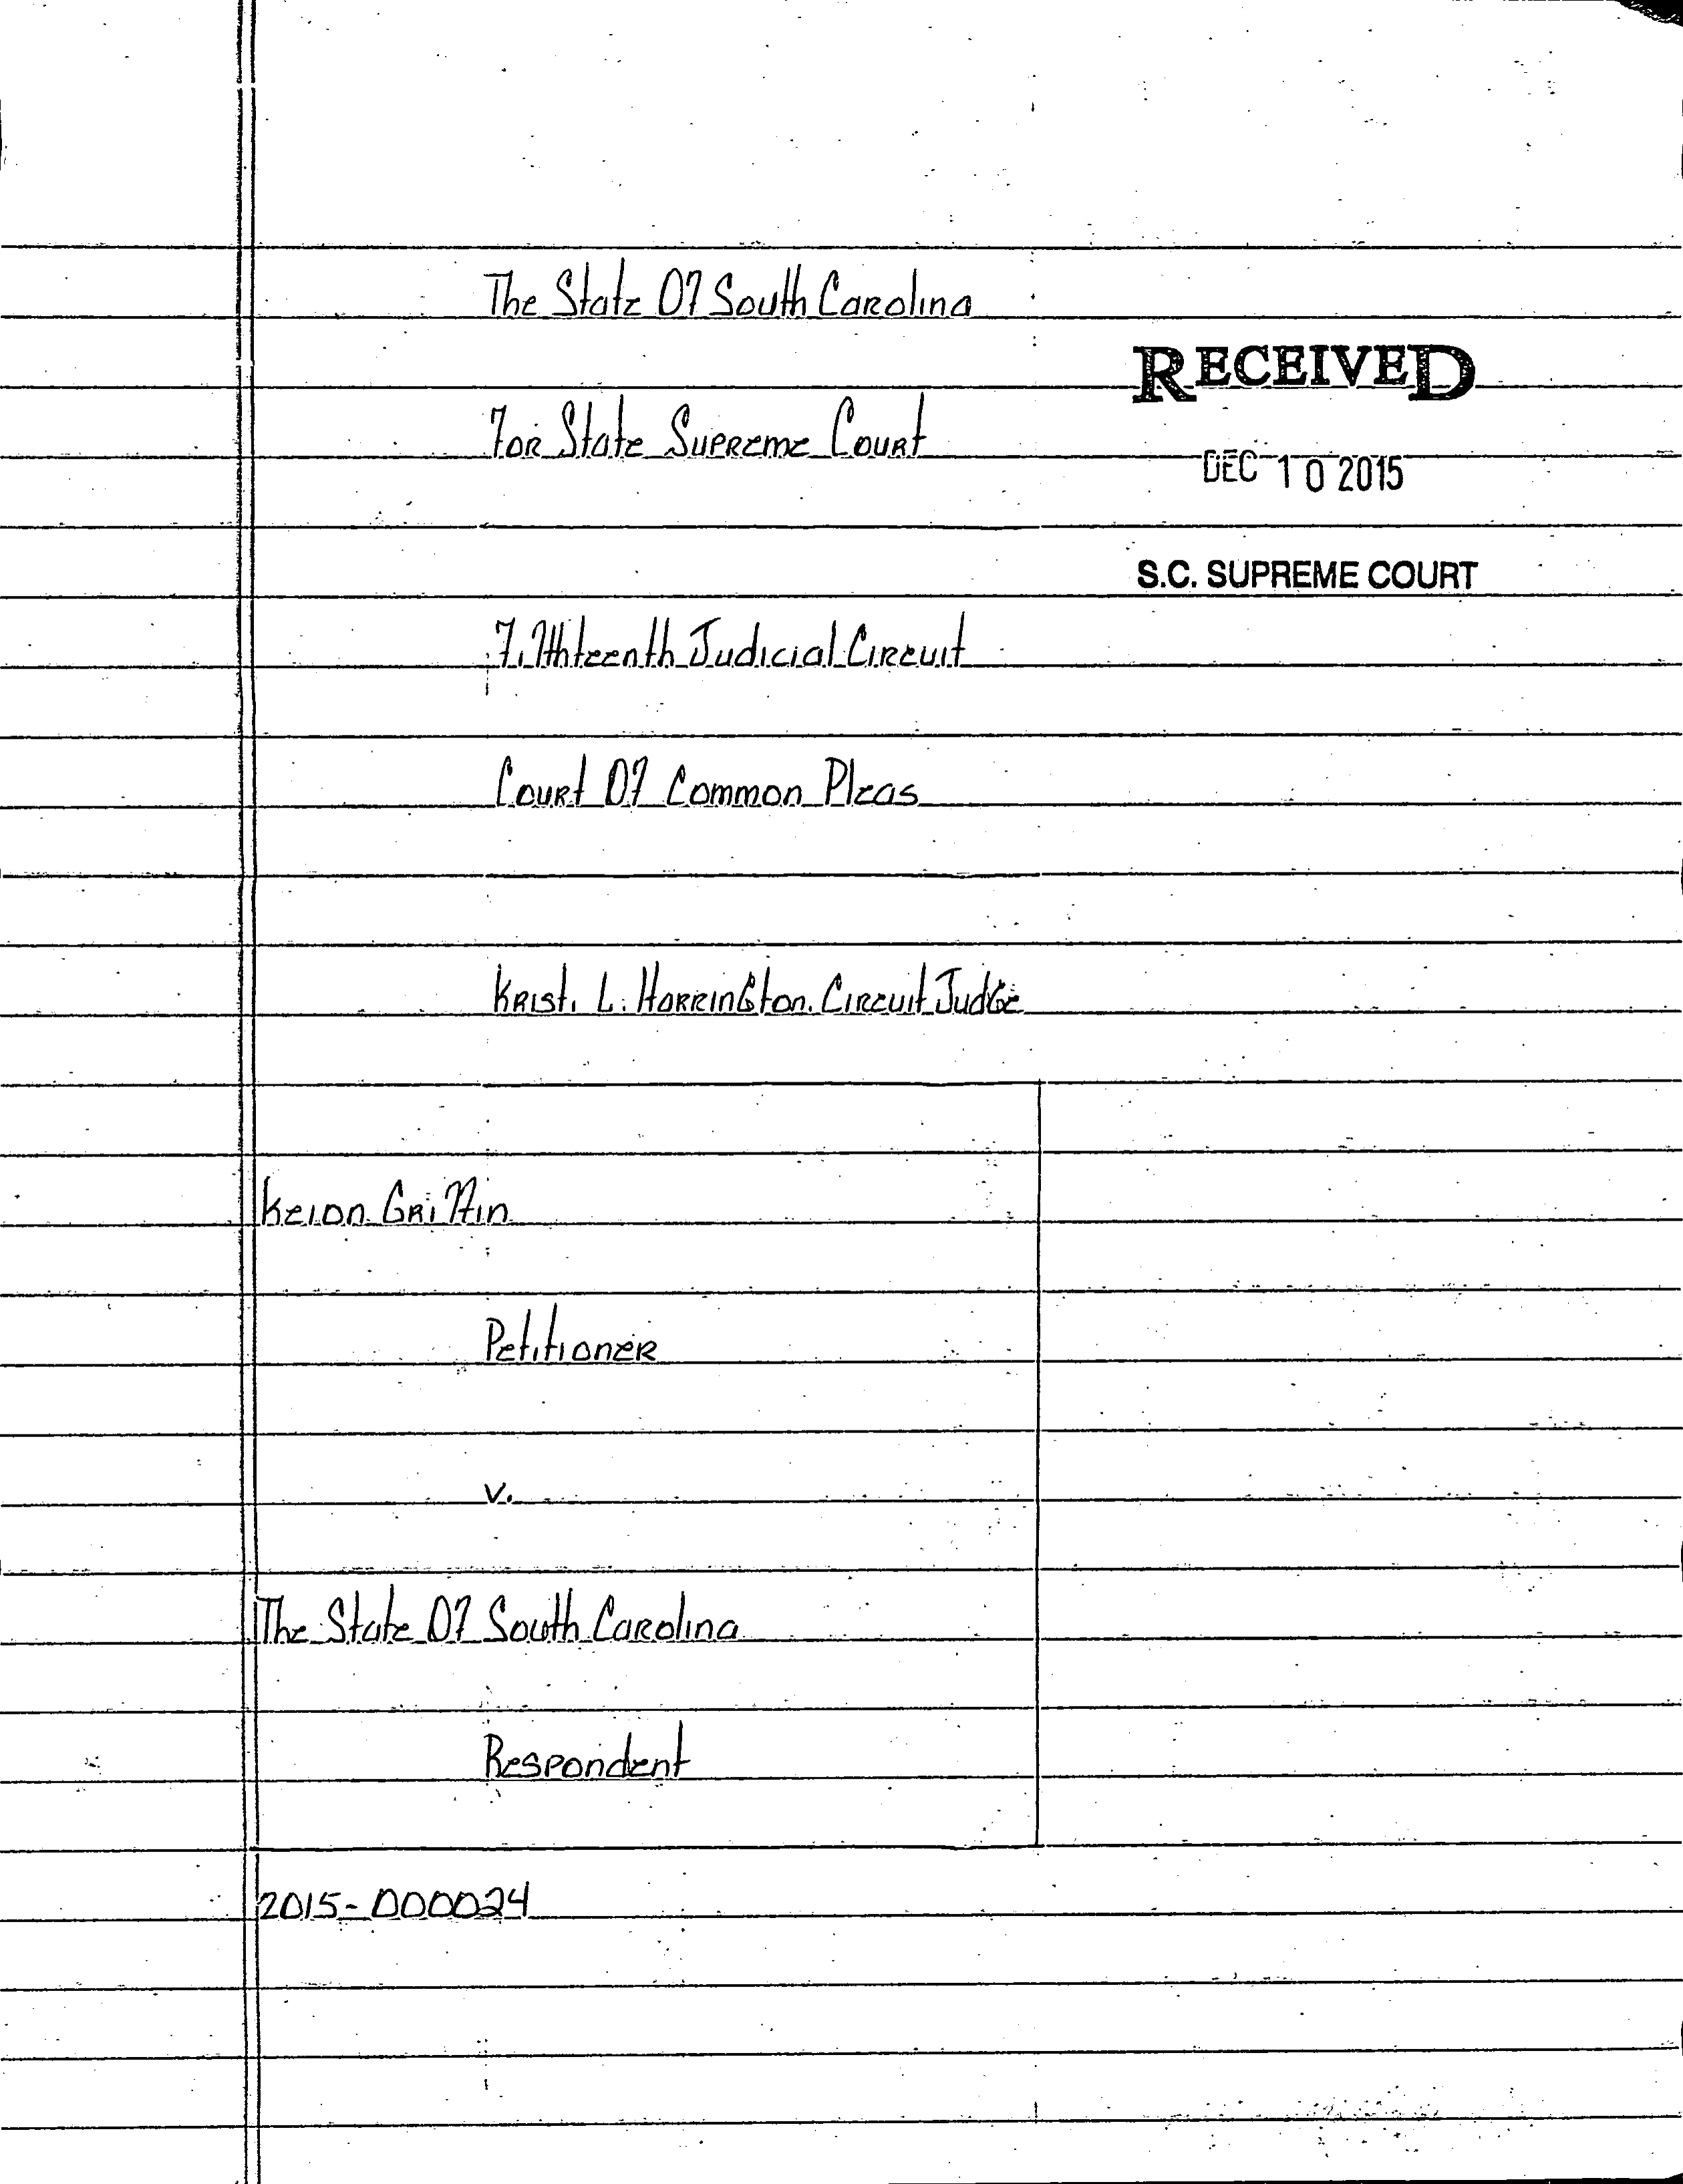 The State Of South Carolina
RECEIVED
For State Supreme Court
DEC 10 2015
S.C. SUPREME COURT
Fifthteenth Judicial Circuit
Court Of Common Pleas
Kristi L. Harrington. Circuit Judge
Keion Griffin
Petitioner
v.
The State Of South Carolina
Respondent
2015-000024